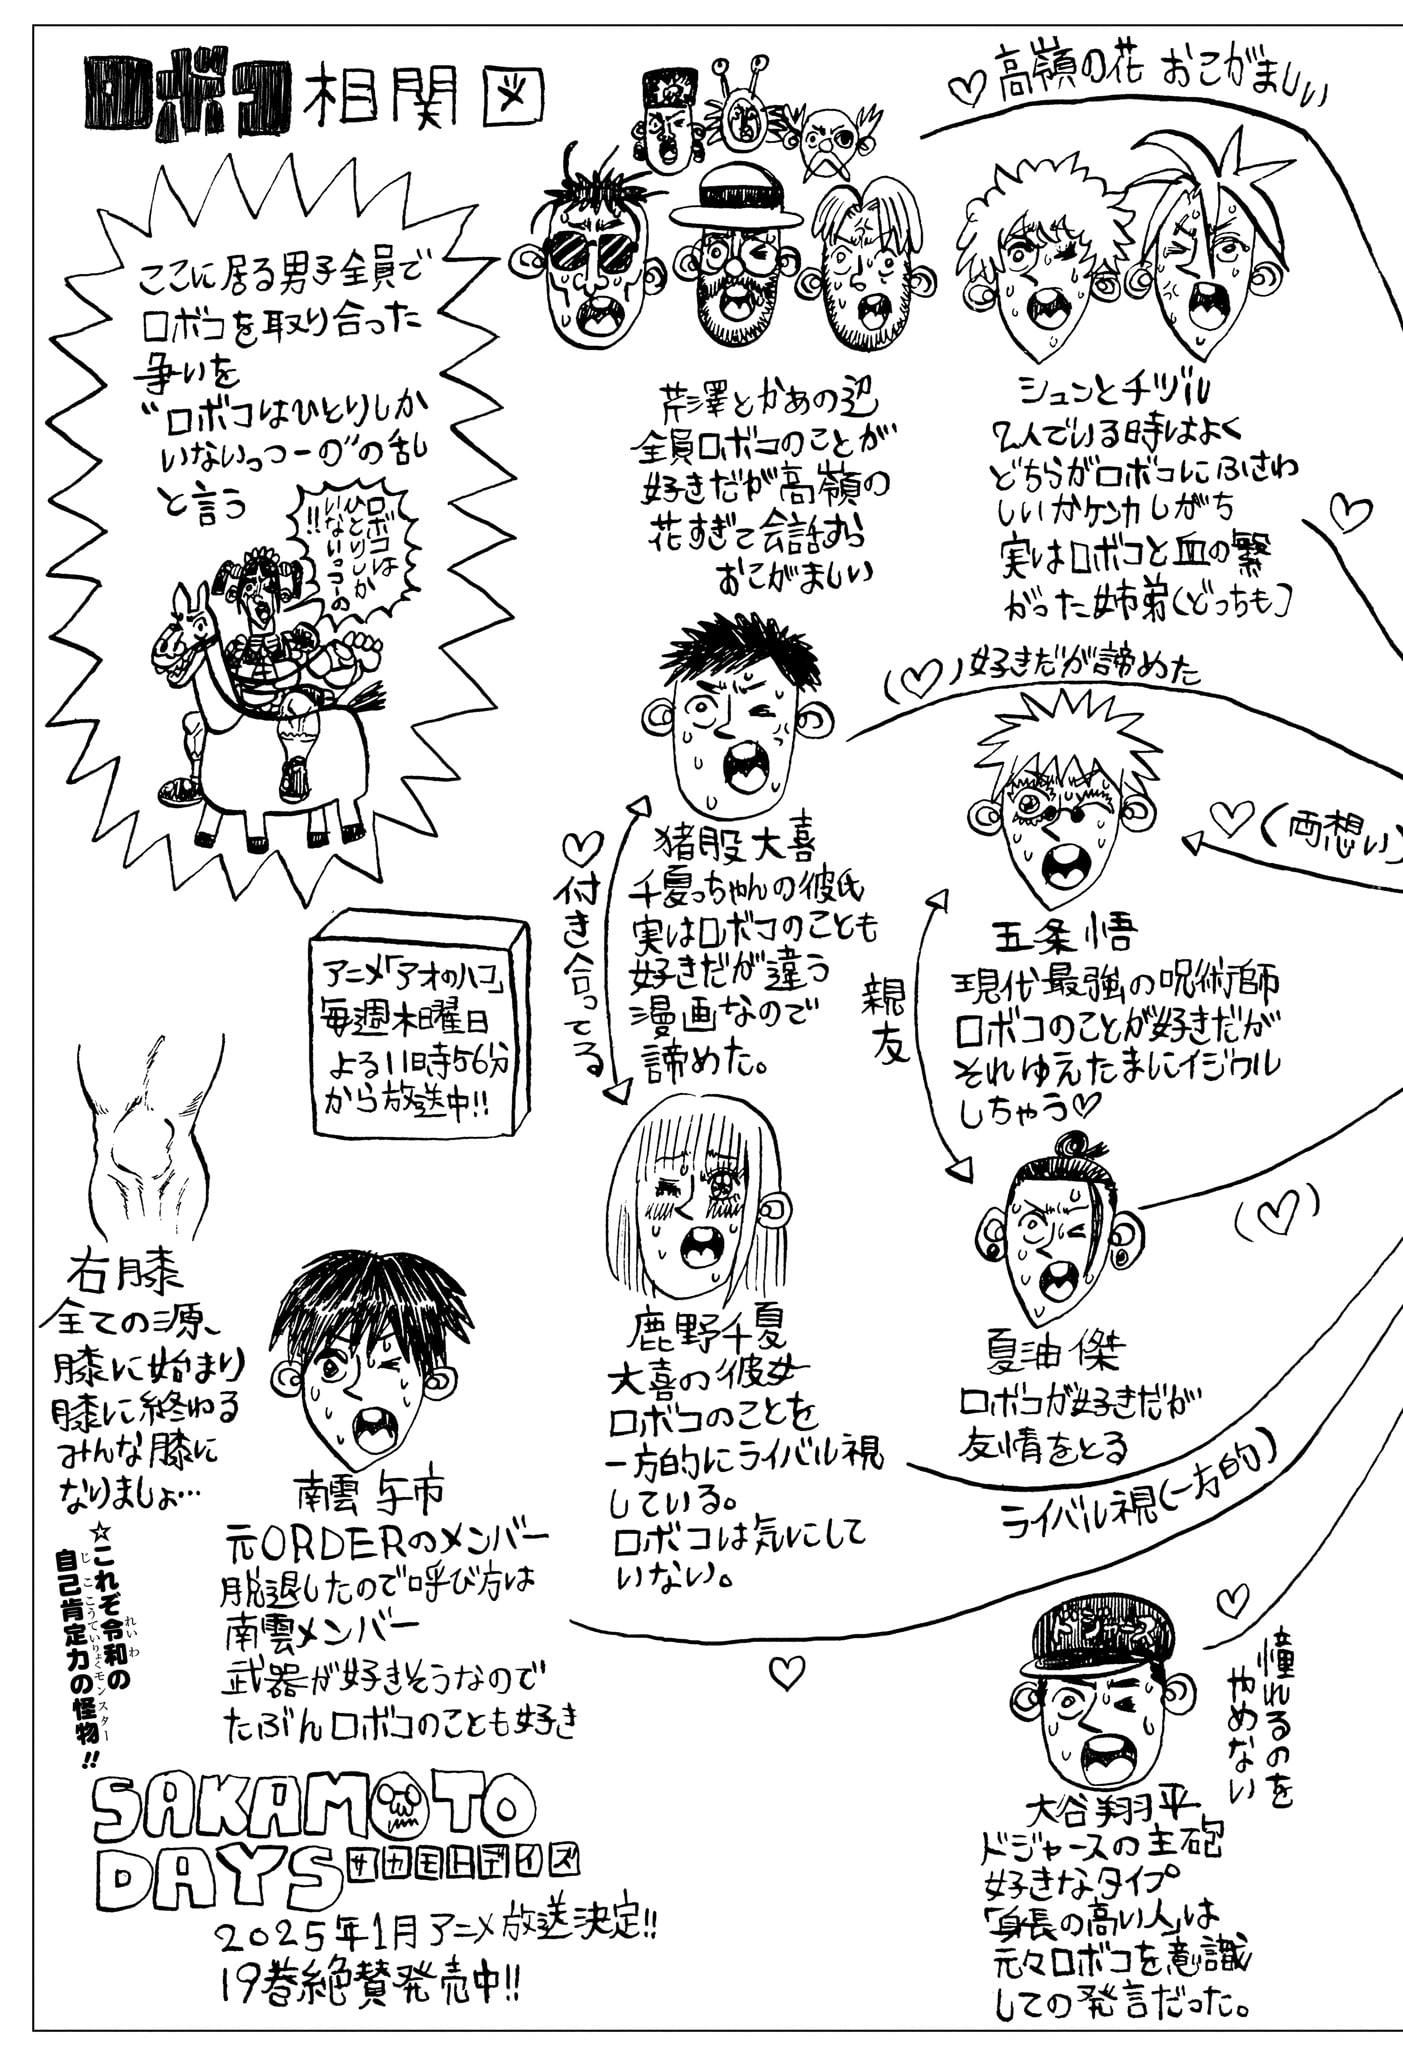 ロボコ相関図
ここに居る男子全員で
ロボコを取り合った
争いを
"ロボコはひとりしか
いないっつーの"の乱
と言う
ロボコは
ひとりしか
いないっつーの
!!
♡高嶺の花 おこがましい
芹澤とかあの辺
全員ロボコのことが
好きだが高嶺の
花すぎて会話すら
おこがましい
シュンとチヅル
2人でいる時はよく
どちらがロボコにふさわ
しいかケンカしがち
実はロボコと血の繋
がった姉弟(どっちも)
♡
(♡)好きだが諦めた
猪股大喜
千夏っちゃんの彼氏
実はロボコのことも
好きだが違う
漫画なので
諦めた。
♡付き合ってる
♡(両想い)
五条悟
現代最強の呪術師
ロボコのことが好きだが
それゆえたまにイジワル
しちゃう♡
親友
アニメ「アオのハコ」
毎週木曜日
よる11時56分
から放送中!!
(♡)
夏油傑
ロボコが好きだが
友情をとる
鹿野千夏
大喜の彼女
ロボコのことを
一方的にライバル視
している。
ロボコは気にして
いない。
ライバル視(一方的)
右膝
全ての源、
膝に始まり
膝に終わる
みんな膝に
なりましょ…
☆これぞ令和の
れいわ
自己肯定力の怪物!!
じここうていりょくモンスター
南雲与市
元ORDERのメンバー
脱退したので呼び方は
南雲メンバー
武器が好きそうなので
たぶんロボコのことも好き
♡
♡
憧れるのを
やめない
ドジャース
大谷翔平
ドジャースの主砲
好きなタイプ
「身長の高い人」は
元々ロボコを意識
しての発言だった。
SAKAMOTO
DAYSサカモトデイズ
2025年1月アニメ放送決定!!
19巻絶賛発売中!!